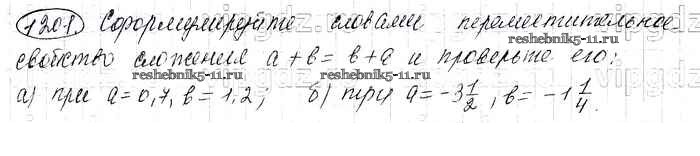 1201. Сформулируйте словами переместительное
свойство сложения a + в = в + a и проверьте его:
reshebnik5-11.ru reshebnik5-11.ru
а) при a = 0,7, в = 1,2; б) при a = -3 1/2, в = -1 1/4.